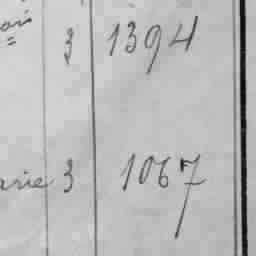 3 1394
arie 3 1067